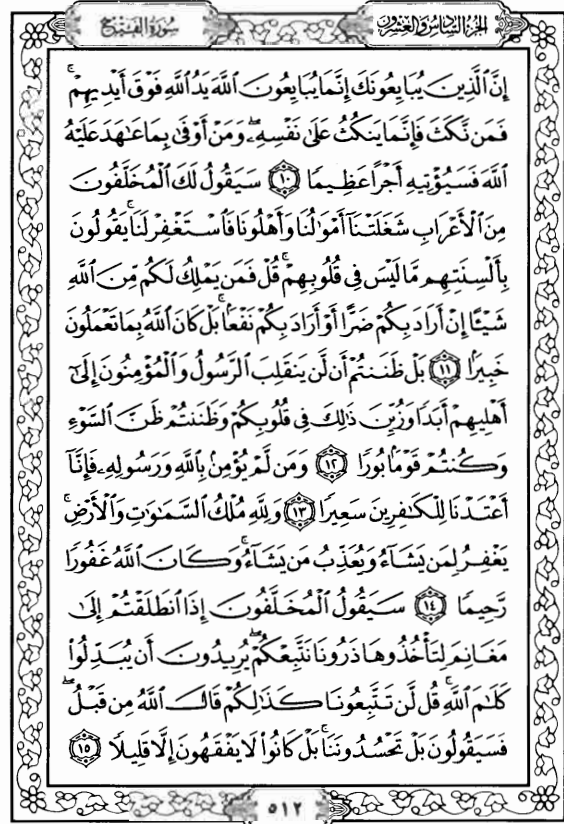 سورة الفتح
الجزء السادس والعشرون
إِنَّ ٱلَّذِينَ يُبَايِعُونَكَ إِنَّمَا يُبَايِعُونَ ٱللَّهَ يَدُ ٱللَّهِ فَوْقَ أَيْدِيهِمْۚ
فَمَن نَّكَثَ فَإِنَّمَا يَنكُثُ عَلَىٰ نَفْسِهِۦۖ وَمَنْ أَوْفَىٰ بِمَا عَٰهَدَ عَلَيْهُ
ٱللَّهَ فَسَيُؤْتِيهِ أَجْرًا عَظِيمًا ١٠ سَيَقُولُ لَكَ ٱلْمُخَلَّفُونَ
مِنَ ٱلْأَعْرَابِ شَغَلَتْنَآ أَمْوَٰلُنَا وَأَهْلُونَا فَٱسْتَغْفِرْ لَنَاۚ يَقُولُونَ
بِأَلْسِنَتِهِم مَّا لَيْسَ فِى قُلُوبِهِمْۚ قُلْ فَمَن يَمْلِكُ لَكُم مِّنَ ٱللَّهِ
شَيْـًٔا إِنْ أَرَادَ بِكُمْ ضَرًّا أَوْ أَرَادَ بِكُمْ نَفْعًۢاۚ بَلْ كَانَ ٱللَّهُ بِمَا تَعْمَلُونَ
خَبِيرًۢا ١١ بَلْ ظَنَنتُمْ أَن لَّن يَنقَلِبَ ٱلرَّسُولُ وَٱلْمُؤْمِنُونَ إِلَىٰٓ
أَهْلِيهِمْ أَبَدًا وَزُيِّنَ ذَٰلِكَ فِى قُلُوبِكُمْ وَظَنَنتُمْ ظَنَّ ٱلسَّوْءِ
وَكُنتُمْ قَوْمًۢا بُورًا ١٢ وَمَن لَّمْ يُؤْمِنۢ بِٱللَّهِ وَرَسُولِهِۦ فَإِنَّآ
أَعْتَدْنَا لِلْكَٰفِرِينَ سَعِيرًا ١٣ وَلِلَّهِ مُلْكُ ٱلسَّمَٰوَٰتِ وَٱلْأَرْضِۚ
يَغْفِرُ لِمَن يَشَآءُ وَيُعَذِّبُ مَن يَشَآءُۚ وَكَانَ ٱللَّهُ غَفُورًا
رَّحِيمًا ١٤ سَيَقُولُ ٱلْمُخَلَّفُونَ إِذَا ٱنطَلَقْتُمْ إِلَىٰ
مَغَانِمَ لِتَأْخُذُوهَا ذَرُونَا نَتَّبِعْكُمْۖ يُرِيدُونَ أَن يُبَدِّلُوا۟
كَلَٰمَ ٱللَّهِۚ قُل لَّن تَتَّبِعُونَا كَذَٰلِكُمْ قَالَ ٱللَّهُ مِن قَبْلُۖ
فَسَيَقُولُونَ بَلْ تَحْسُدُونَنَاۚ بَلْ كَانُوا۟ لَا يَفْقَهُونَ إِلَّا قَلِيلًا ١٥
٥١٢